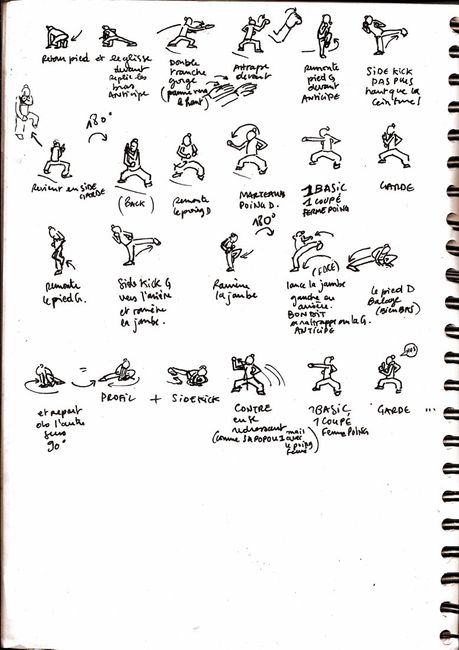 Retour pied
et reglisse
devant
replie les
bras
ANTICIPE
Double
tranche
gorge
(paume vers
le haut)
Attrape
devant
Remonte
pied G
devant
ANTICIPE
SIDE KICK
PAS PLUS
haut que la
ceinture!
180°
Revient en SIDE
GARDE
(BACK)
Remonte
le poing D
MARTEAU
POING D.
180°
1 BASIC
1 COUPÉ
FERME POING
GARDE
Remonte
le pied G.
Side Kick G
vers l'arrière
et ramène
la jambe.
Ramène
la jambe
(FACE)
lance la jambe
gauche en
arrière.
BONDIT
et rattrape sur la G.
ANTICIPE
le pied D
Balaye
(Bien BAS)
et repart
ds l'autre
sens
90°
=
PROFIL
+ SIDEKICK
CONTRE
en se
redressant
(comme SAPOPOU 1 mais
avec
le poing
fermé)
1 BASIC
1 COUPÉ
Ferme POING
GARDE ...